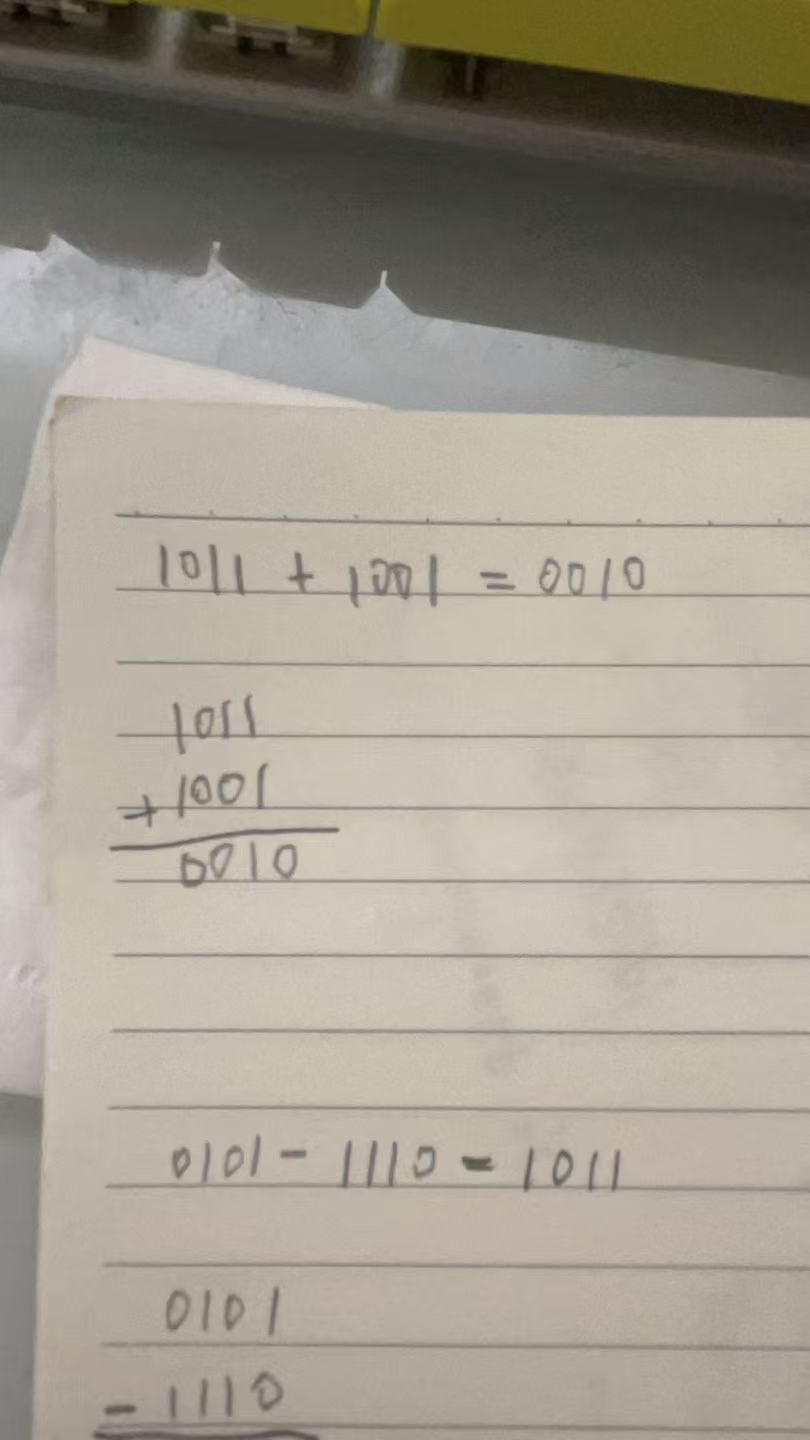 1011 + 1001 = 0010
1011
+ 1001
0010
0101 - 1110 = 1011
0101
- 1110